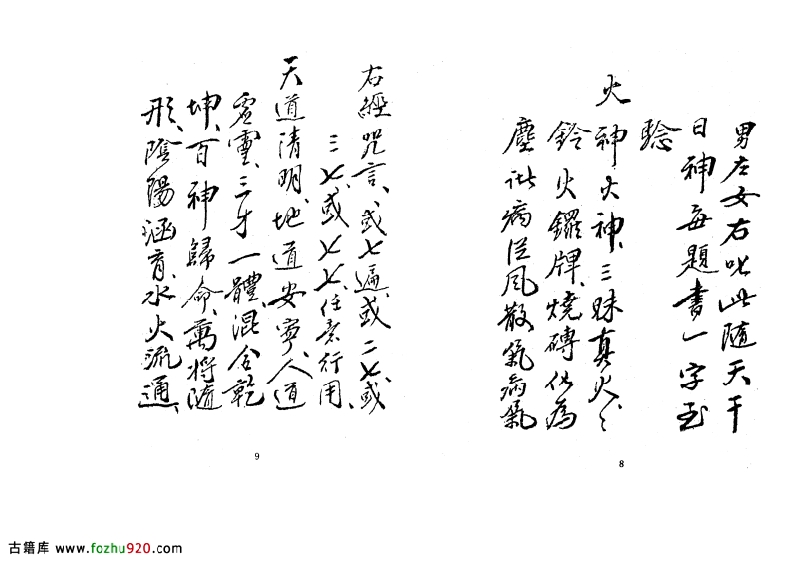 男左女右吃此随天干
日神每題書一字玉
騐
火神火神、三昧真火、火
鈴火鑼牌、燒磚化為
塵、諸病從風散氣病氣
8
右經咒言、或七遍或二七或
三七或七七、任意行用、
天道清明、地道安寧、人道
虛靈、三才一體、混合乾
坤、百神歸命、萬將隨
形、陰陽涵育、水火流通、
9
古籍库 www.fozhu920.com